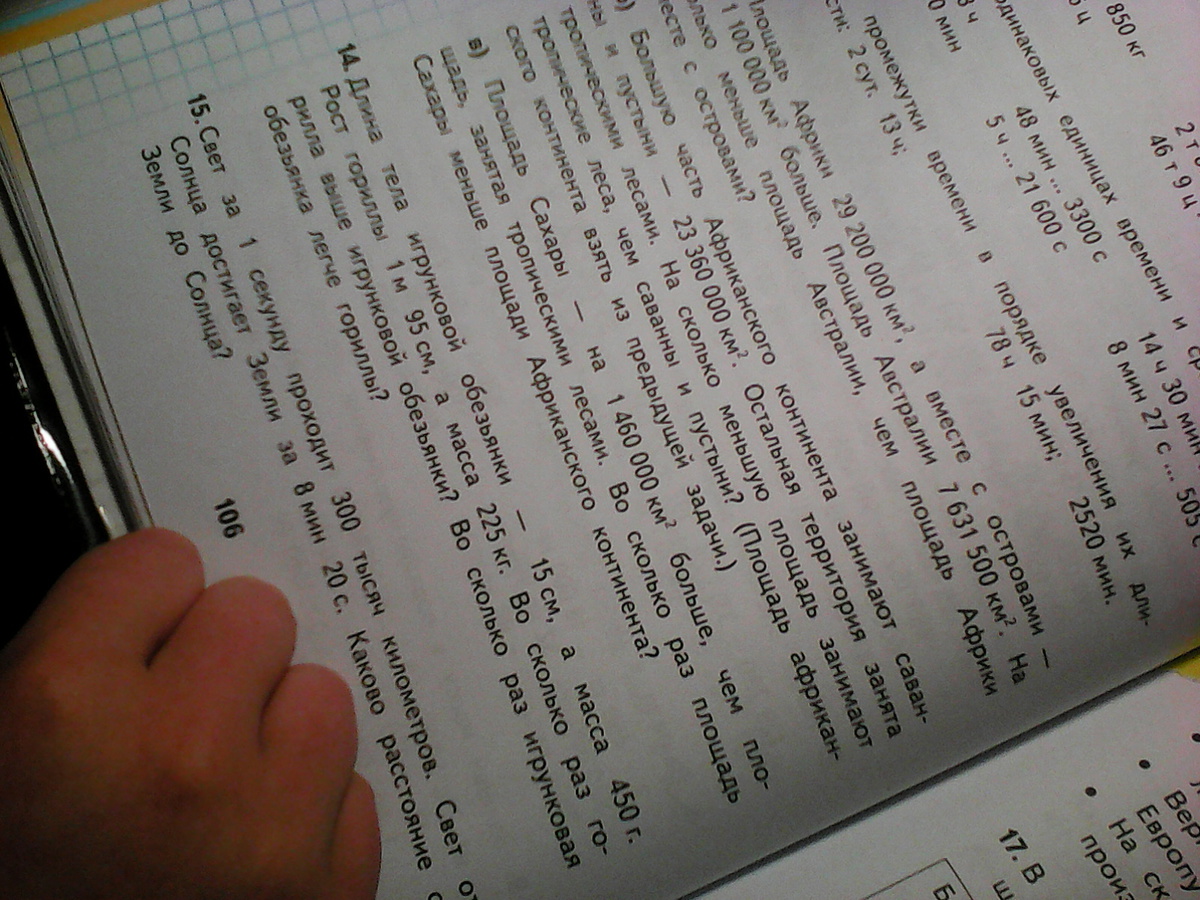 850 кг
2 т
46 т 9 ц
одинаковых единицах времени и ср
48 мин ... 3300 с
14 ч 30 мин
0 мин
5 ч ... 21 600 с
8 мин 27 с ... 505 с
промежутки времени в порядке увеличения их дли-
2 сут. 13 ч;
78 ч 15 мин;
2520 мин.
Площадь Африки 29 200 000 км², а вместе с островами —
1 100 000 км² больше. Площадь Австралии 7 631 500 км². На
меньше площадь Австралии, чем площадь Африки
с островами?
б) Большую часть Африканского континента занимают саван-
ны и пустыни — 23 360 000 км². Остальная территория занята
тропическими лесами. На сколько меньшую площадь занимают
тропические леса, чем саванны и пустыни? (Площадь африкан-
ского континента взять из предыдущей задачи.)
в) Площадь Сахары — на 1 460 000 км² больше, чем пло-
щадь, занятая тропическими лесами. Во сколько раз площадь
Сахары меньше площади Африканского континента?
14. Длина тела игрунковой обезьянки — 15 см, а масса 450 г.
Рост гориллы 1 м 95 см, а масса 225 кг. Во сколько раз го-
рилла выше игрунковой обезьянки? Во сколько раз игрунковая
обезьянка легче гориллы?
15. Свет за 1 секунду проходит 300 тысяч километров. Свет от
Солнца достигает Земли за 8 мин 20 с. Каково расстояние
Земли до Солнца?
106
Европу
На
17. В